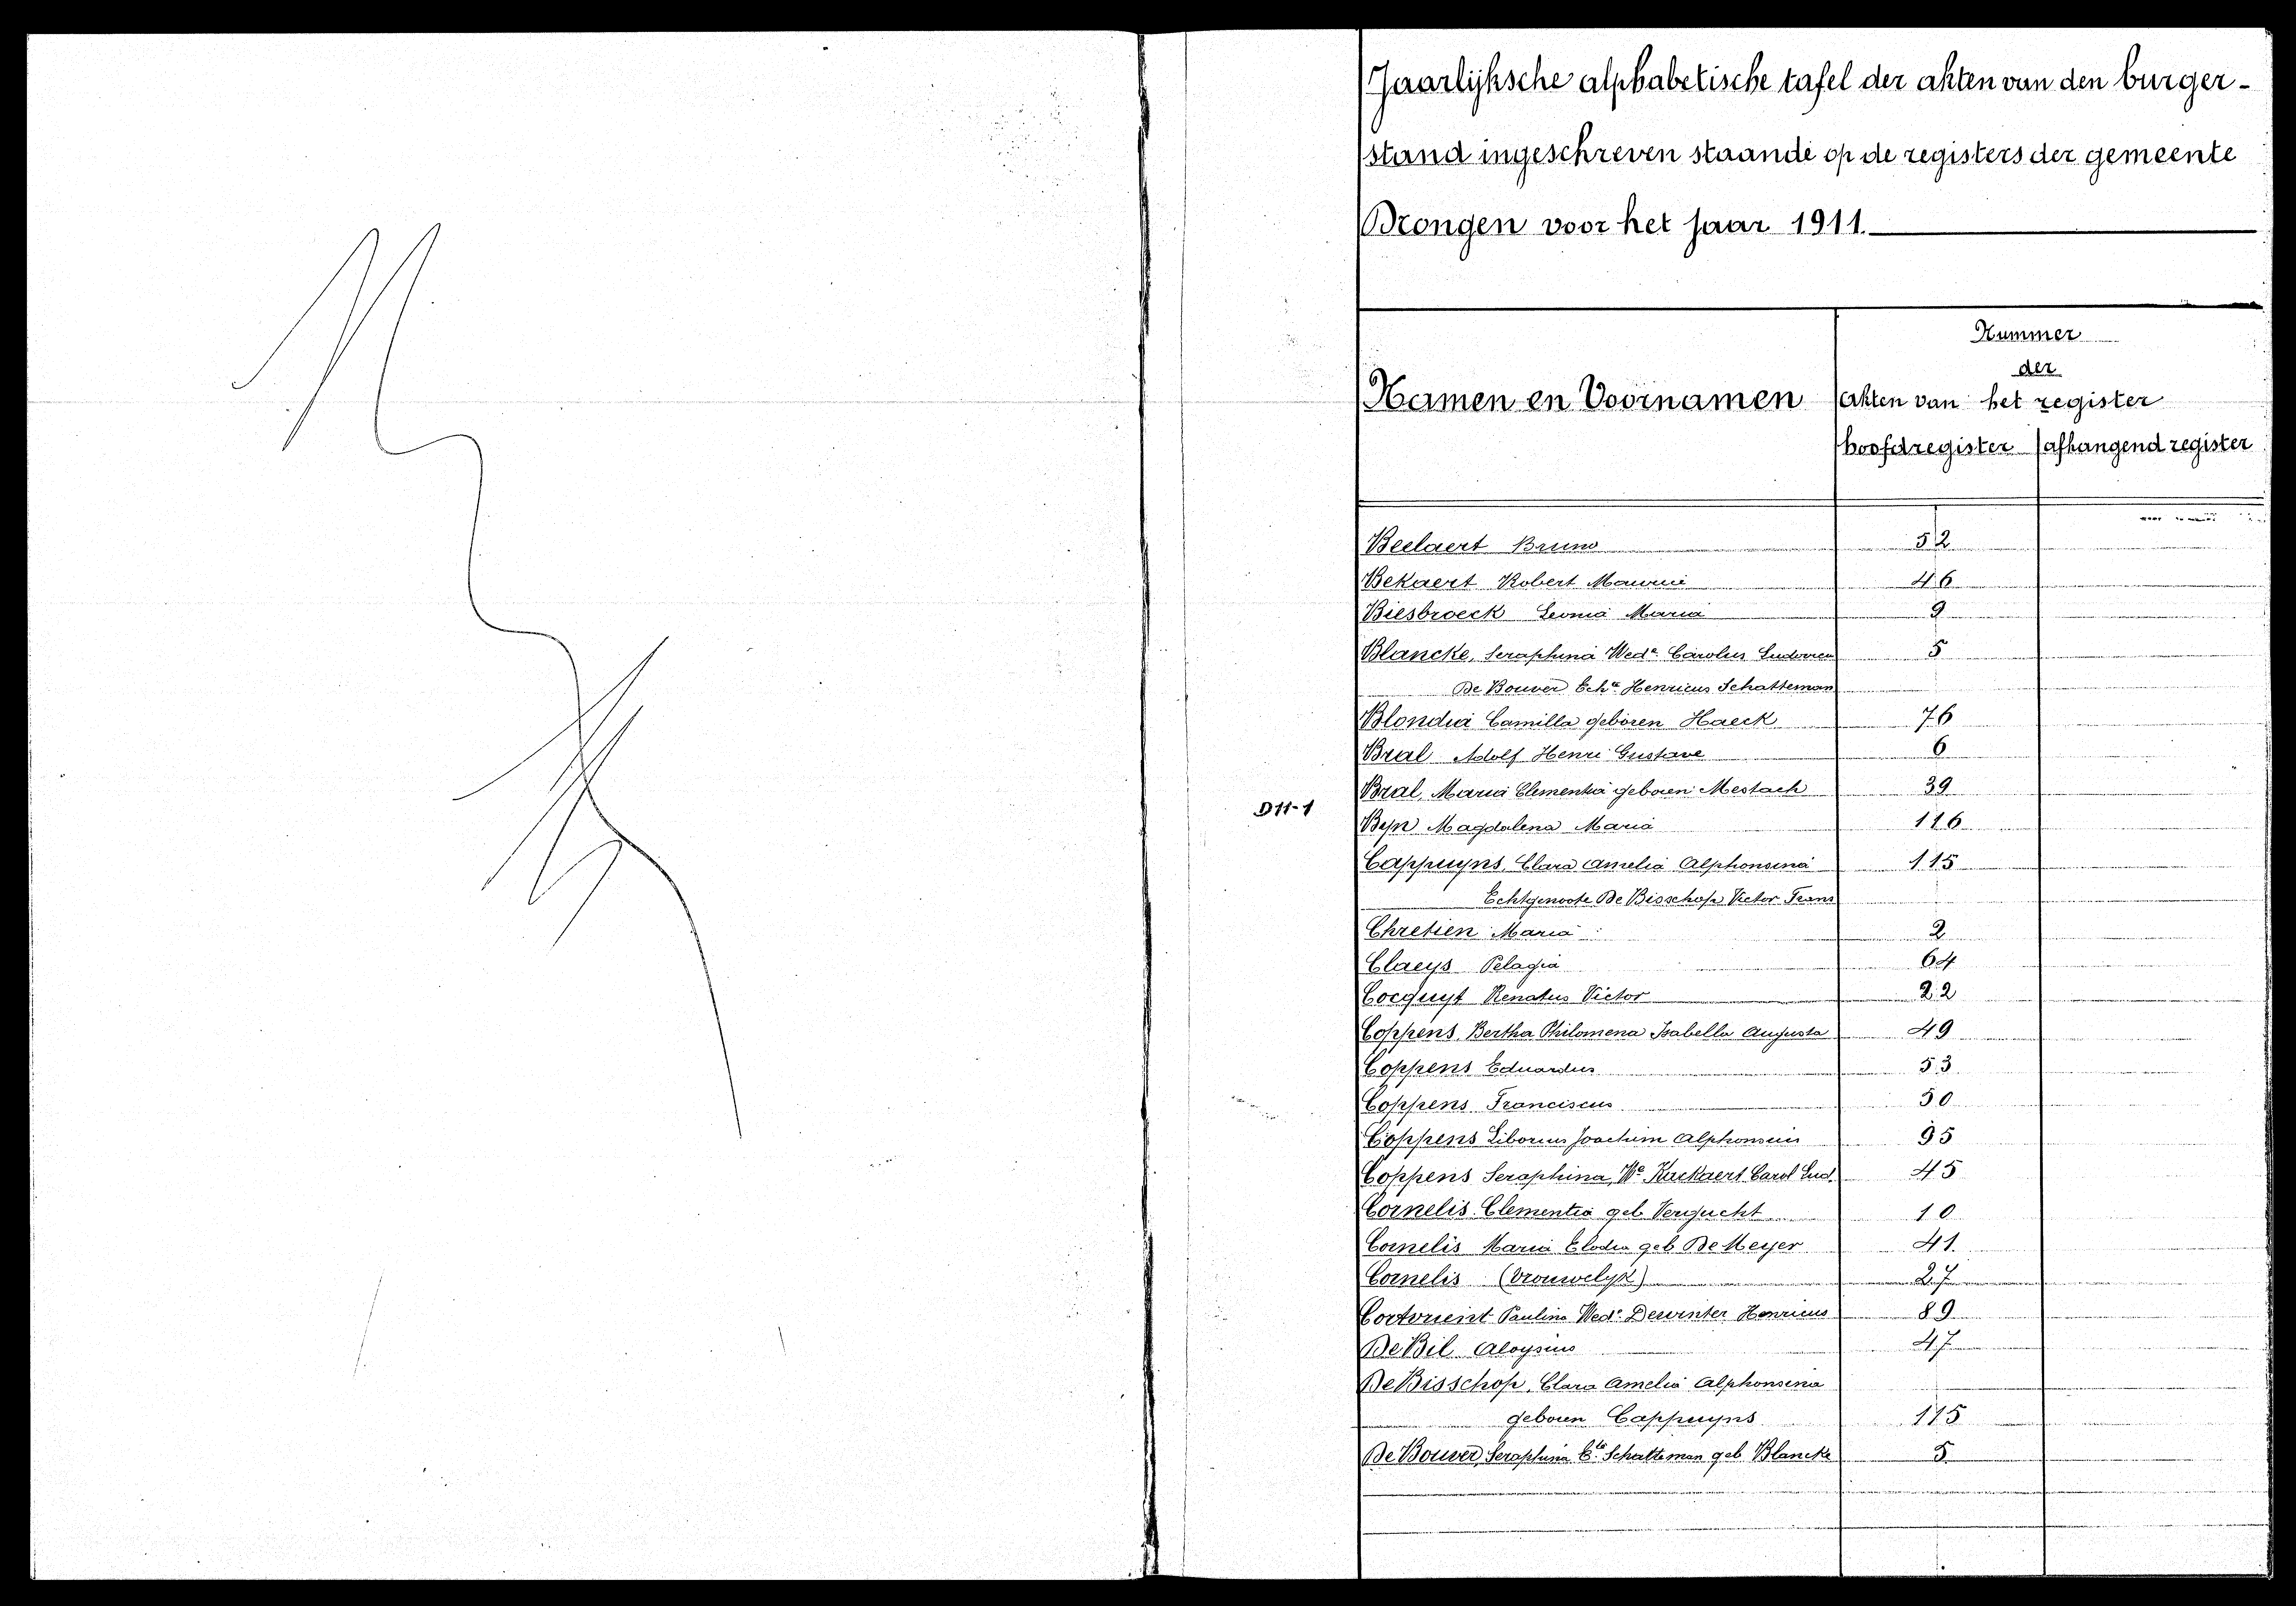 Jaarlijksche alphabetische tafel der akten van den burger-
stand ingeschreven staande op de registers der gemeente
Drongen voor het jaar 1911.
Namen en Voornamen
Nummer
der
akten van het register
hoofdregister afhangend register
Beelaert Bruno 52
Bekaert Robert Maurice 46
Biesbroeck Leonia Maria 9
Blancke, Seraphina Wede Carolus Ludovicu 5
De Bouver Echte Henricus Schatteman
Blondia Camilla geboren Haeck 76
Bral Adolf Henri Gustave 6
Bral, Maria Clementia geboren Mestach 39
D11-1
Byn Magdalena Maria 116
Cappuyns, Clara Amelia Alphonsina 115
Echtgenoote De Bisschop Victor Frans
Chretien Maria 2
Claeys Pelagia 64
Cocquyt Renatus Victor 22
Coppens, Bertha Philomena Isabella Augusta 49
Coppens Eduardus 53
Coppens Franciscus 50
Coppens Liborius Joachim Alphonsius 95
Coppens Seraphina, We Kuckaert Carol Lud. 45
Cornelis Clementia geb Vergucht 10
Cornelis Maria Elodia geb De Meyer 41
Cornelis (vrouwelyk) 27
Cortvrient Paulina Wede Dewinter Henricus 89
De Bil Aloysius 47
De Bisschop, Clara Amelia Alphonsina
geboren Cappuyns 115
De Bouver, Seraphina Ete Schatteman geb Blancke 5